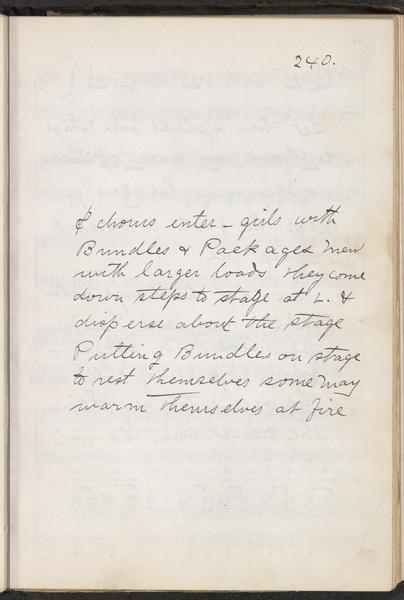 240.
& chorus enter - girls with
Bundles & Packages men
with larger loads they come
down steps to stage at L. &
disperse about the stage
Putting Bundles on stage
to rest themselves some may
warm themselves at fire